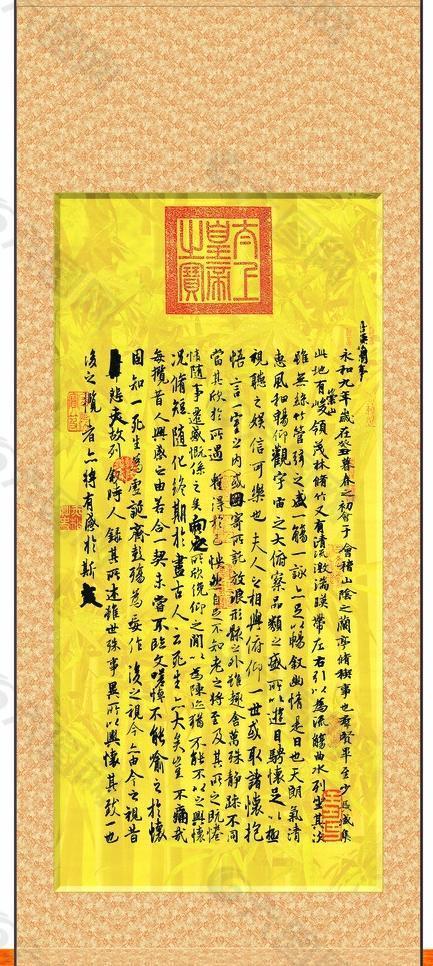 太上
皇帝
之寶
永和九年歲在癸暮春之初會于會稽山陰之蘭亭脩稧事也羣賢畢至少長咸集
此地有崇山峻領茂林脩竹又有清流激湍暎帶左右引以為流觴曲水列坐其次
雖無絲竹管弦之盛一觴一詠亦足以暢敘幽情是日也天朗氣清
惠風和暢仰觀宇宙之大俯察品類之盛所以遊目騁懷足以極
視聽之娛信可樂也夫人之相與俯仰一世或取諸懷抱
悟言一室之內或因寄所託放浪形骸之外雖趣舍萬殊靜躁不同
當其欣於所遇暫得於己怏然自足不知老之將至及其所之既惓
情隨事遷感慨係之矣向之所欣俛仰之間以為陳迹猶不能不以之興懷
況脩短隨化終期於盡古人云死生亦大矣豈不痛哉
每攬昔人興感之由若合一契未嘗不臨文嗟悼不能喻之於懷
固知一死生為虛誕齊彭殤為妄作後之視今亦由今之視昔
悲夫故列敘時人錄其所述雖世殊事異所以興懷其致一也
後之攬者亦將有感於斯文